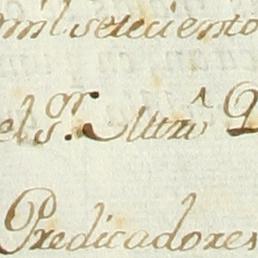 mil setecientos
el S.or Mtro
Predicadores